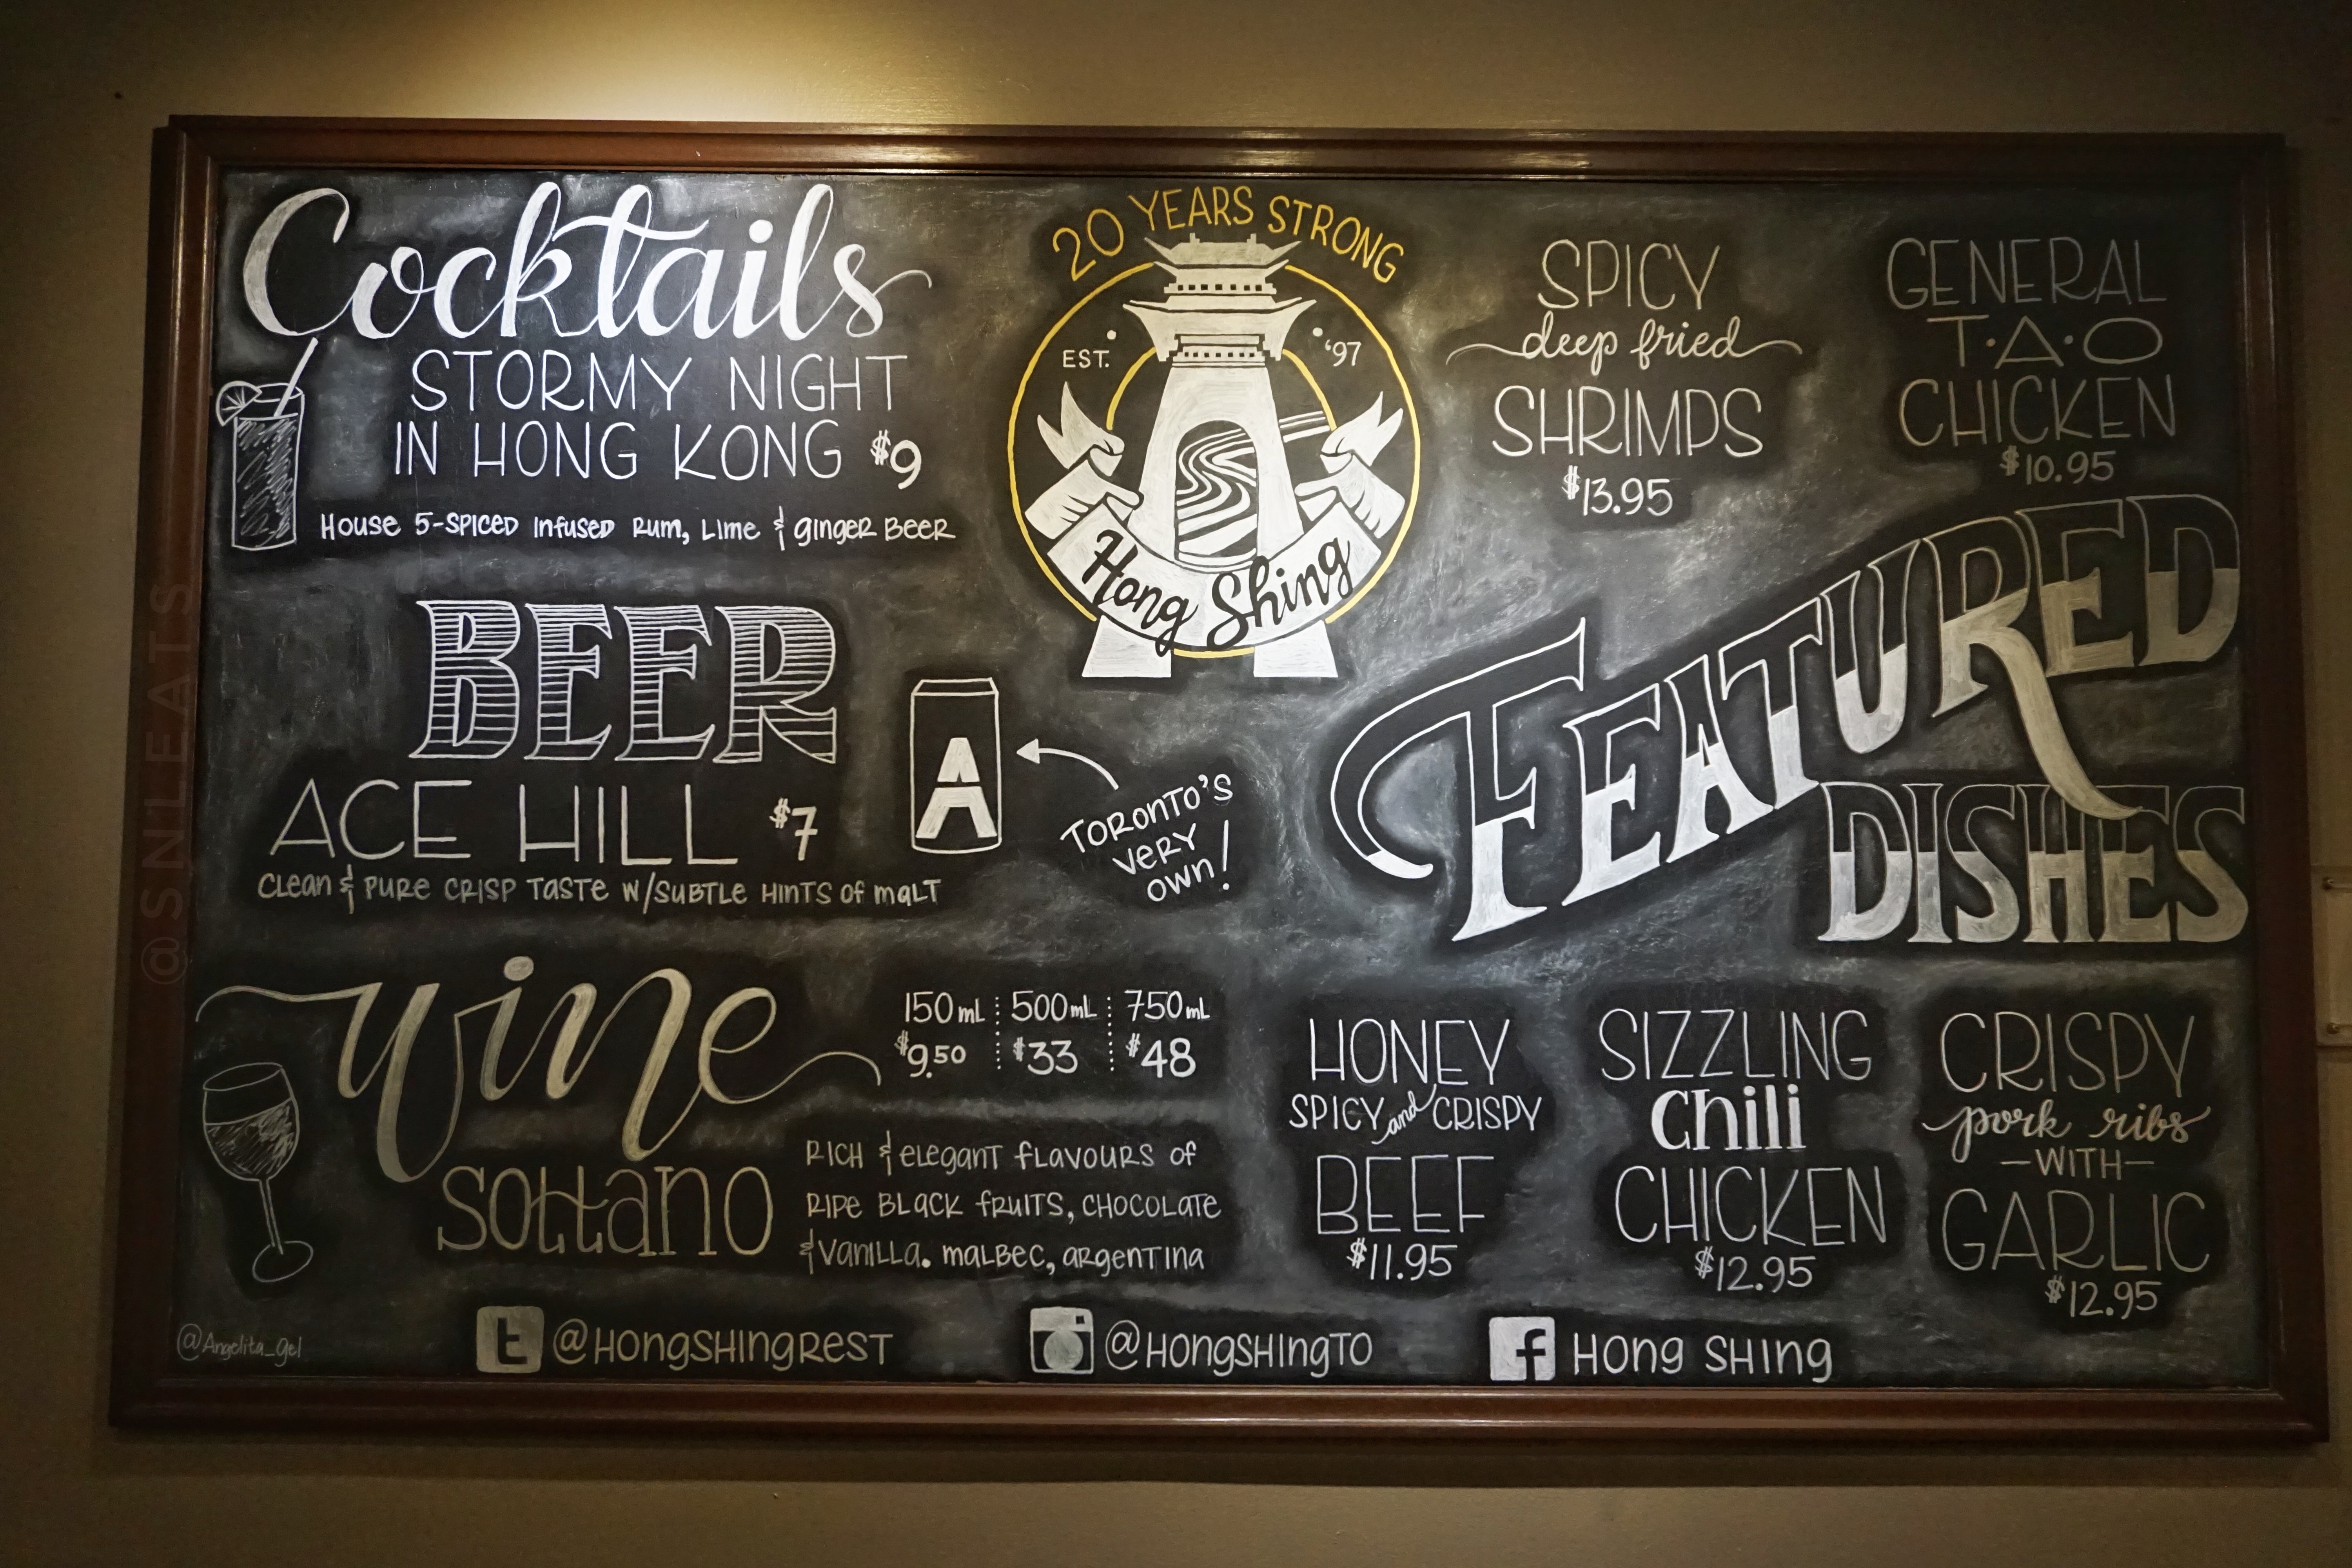 Cocktails
STORMY NIGHT
IN HONG KONG $9
House 5-SPICED infused Rum, Lime & ginger BEER
BEER
ACE HILL $7
Clean & PURE CRISP TASTE W/SUBTLE HINTS of malT
A
TORONTO'S
VERY
OWN!
wine
150mL 500mL 750mL
$9.50 $33 $48
sottano
RICH & elegant flavours of
RIPE BLACK fRUITS, CHOCOLATE
& Vanilla. malbec, argentina
20 YEARS STRONG
EST. '97
Hong Shing
SPICY
deep fried
SHRIMPS
$13.95
GENERAL
T·A·O
CHICKEN
$10.95
FEATURED
DISHES
HONEY
SPICY and CRISPY
BEEF
$11.95
SIZZLING
Chili
CHICKEN
$12.95
CRISPY
pork ribs
-WITH-
GARLIC
$12.95
@Angelita_gel
t @HongSHingREST
@HongSHingTO
f Hong SHing
@SNLEATS